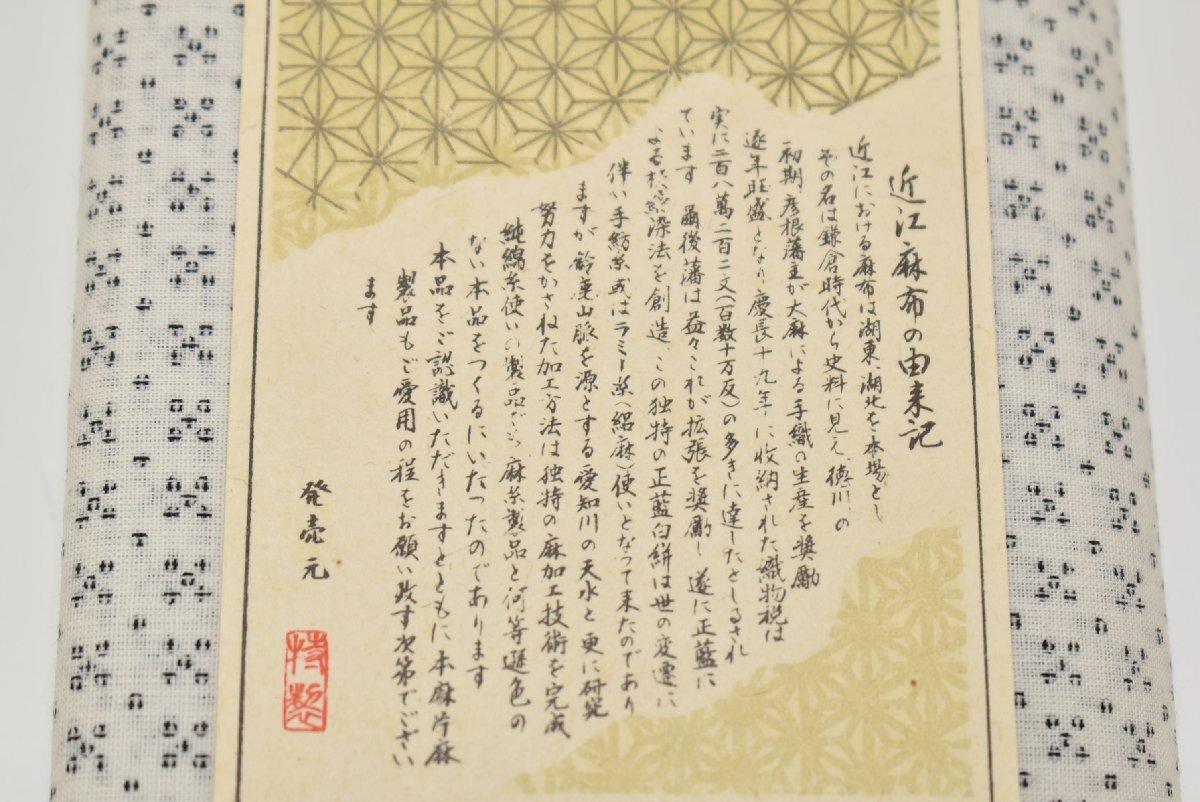 近江麻布の由来記
近江における麻布は湖東、湖北を本場とし
その名は鎌倉時代から史料に見え、徳川の
初期、彦根藩主が大麻による手織の生産を奨励
逐年旺盛となり慶長十九年に収納された織物税は
実に二百八萬二百二文(百数十万反)の多きに達したとしるされ
ています 爾後藩は益々これが拡張を奨励し 遂に正藍に
よる 染法を創造、この独特の正藍白絣は世の変遷に
伴い手紡糸或はラミー糸(絽麻)使いとなつて来たのであり
ますが鈴鹿山脈を源とする愛知川の天水と更に研究
努力をかさねた加工方法は独特の麻加工技術を完成
純綿糸使いの製品でも麻糸製品と何等遜色の
ない本品をつくるにいたつたのであります
本品をご認識いただきますとともに本麻片麻
製品もご愛用の程をお願い致す次第でござい
ます
発売元
特製